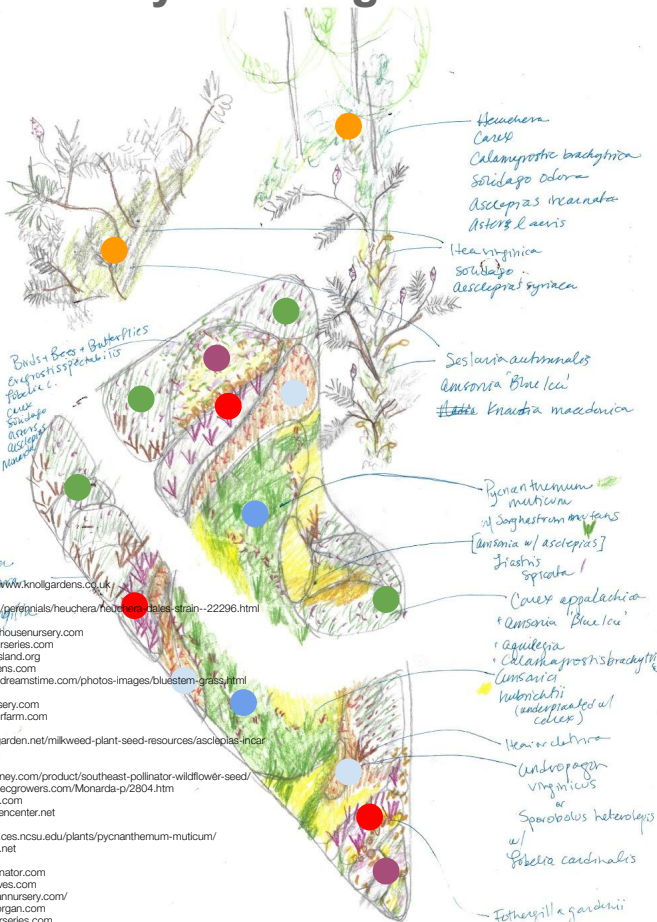 Heuchera
Carex
Calamagrostic brachytrica
Solidago odora
Asclepias incarnata
Asters laevis
Itea virginica
Solidago
Aesclepias syriaca
Birds + Bees + Butterflies
Eragrostis spectabilis
Lobelia c.
Carex
Solidago
Asters
Asclepias
Monarda
Seslaria autumnalis
Amsonia 'Blue Ice'
Knautia macedonica
Pycnanthemum
muticum
w/ Sorghastrum nutans
[amsonia w/ asclepias]
Liastris
Spicata
Carex appalachica
+ amsonia 'Blue Ice'
aquilegia
Calamagrostis brachytri
Amsonia
hubrichtii
(underplanted w/
carex)
andropogon
virginicus
or
Sporobolus heterolepis
w/
Lobelia cardinalis
Fothergilla gardenii
www.knollgardens.co.uk
/perennials/heuchera/heuchera-dales-strain--22296.html
housenursery.com
rseries.com
sland.org
ens.com
dreamstime.com/photos-images/bluestem-grass.html
sery.com
erfarm.com
garden.net/milkweed-plant-seed-resources/asclepias-incar
ney.com/product/southeast-pollinator-wildflower-seed/
ecgrowers.com/Monarda-p/2804.htm
.com
encenter.net
ces.ncsu.edu/plants/pycnanthemum-muticum/
.net
nator.com
ves.com
annursery.com/
organ.com
rseries.com